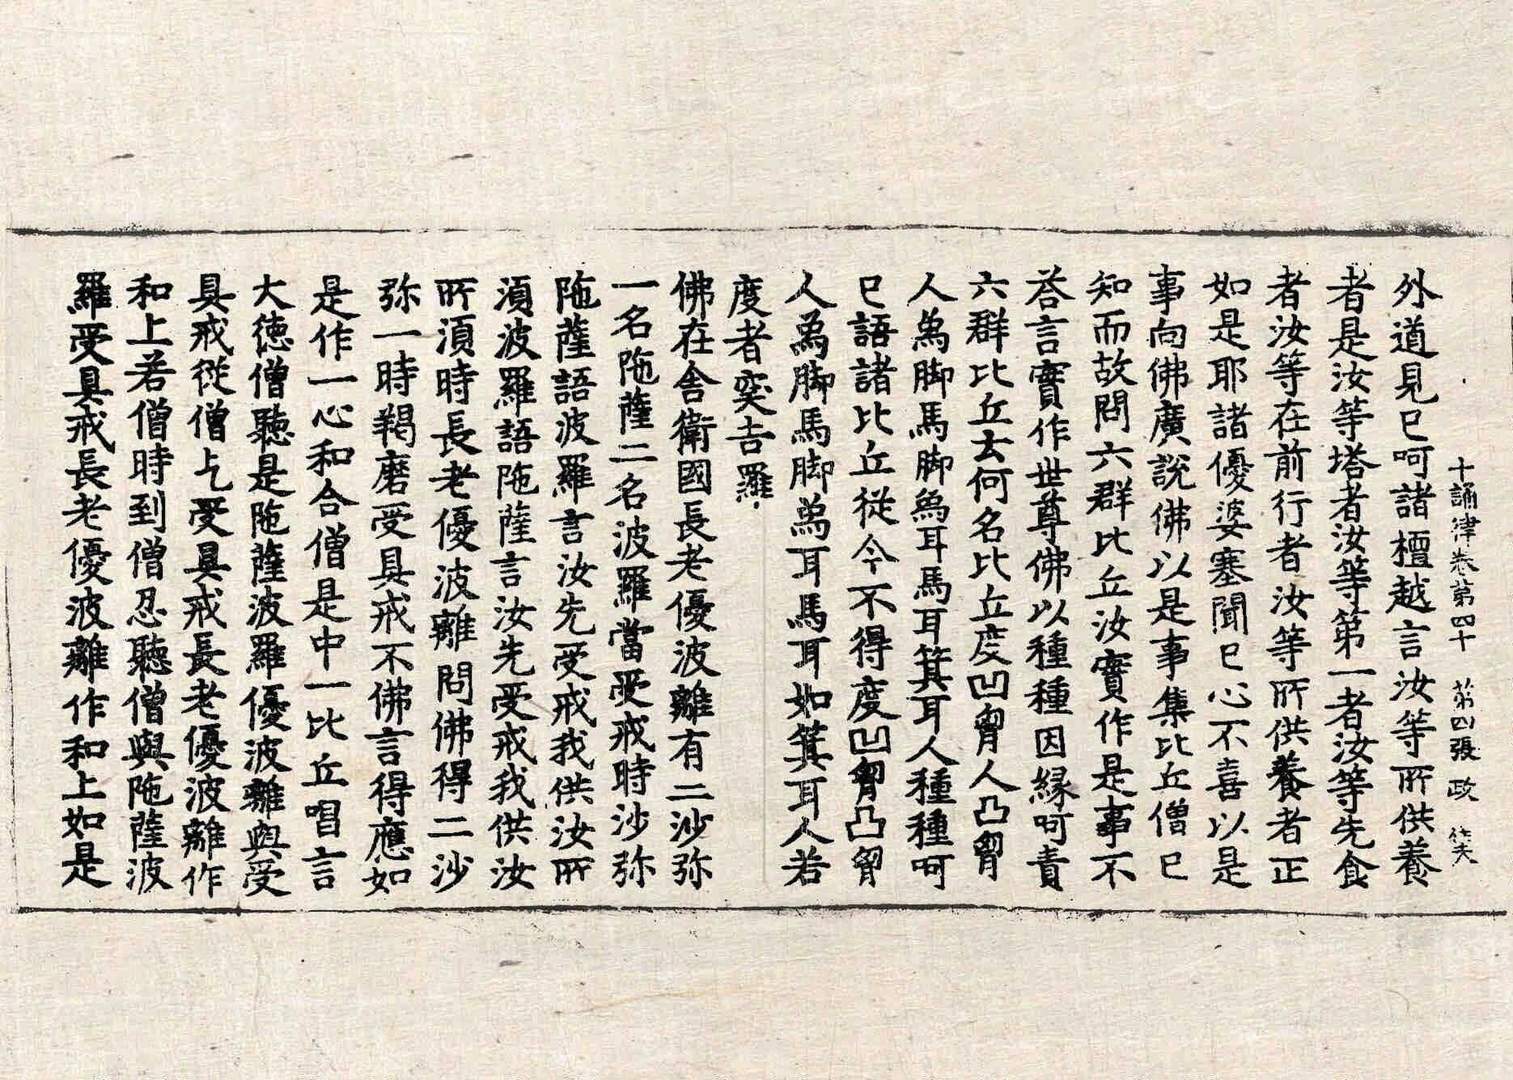 十誦律卷第四十　第四張　政　作夫
外道見已呵諸檀越言汝等所供養
者是汝等塔者汝等第一者汝等先食
者汝等在前行者汝等所供養者正
如是耶諸優婆塞聞已心不喜以是
事向佛廣說佛以是事集比丘僧已
知而故問六群比丘汝實作是事不
荅言實作世尊佛以種種因緣呵責
六群比丘云何名比丘度凹胷人凸胷
人爲脚馬脚爲耳馬耳箕耳人種種呵
已語諸比丘從今不得度凹胷凸胷
人爲脚馬脚爲耳馬耳如箕耳人若
度者突吉羅
佛在舍衛國長老優波離有二沙弥
一名陁薩二名波羅當受戒時沙弥
陁薩語波羅言汝先受戒我供汝所
湏波羅語陁薩言汝先受戒我供汝
所湏時長老優波離問佛得二沙
弥一時羯磨受具戒不佛言得應如
是作一心和合僧是中一比丘唱言
大德僧聽是陁薩波羅優波離與受
具戒從僧乞受具戒長老優波離作
和上若僧時到僧忍聽僧與陁薩波
羅受具戒長老優波離作和上如是